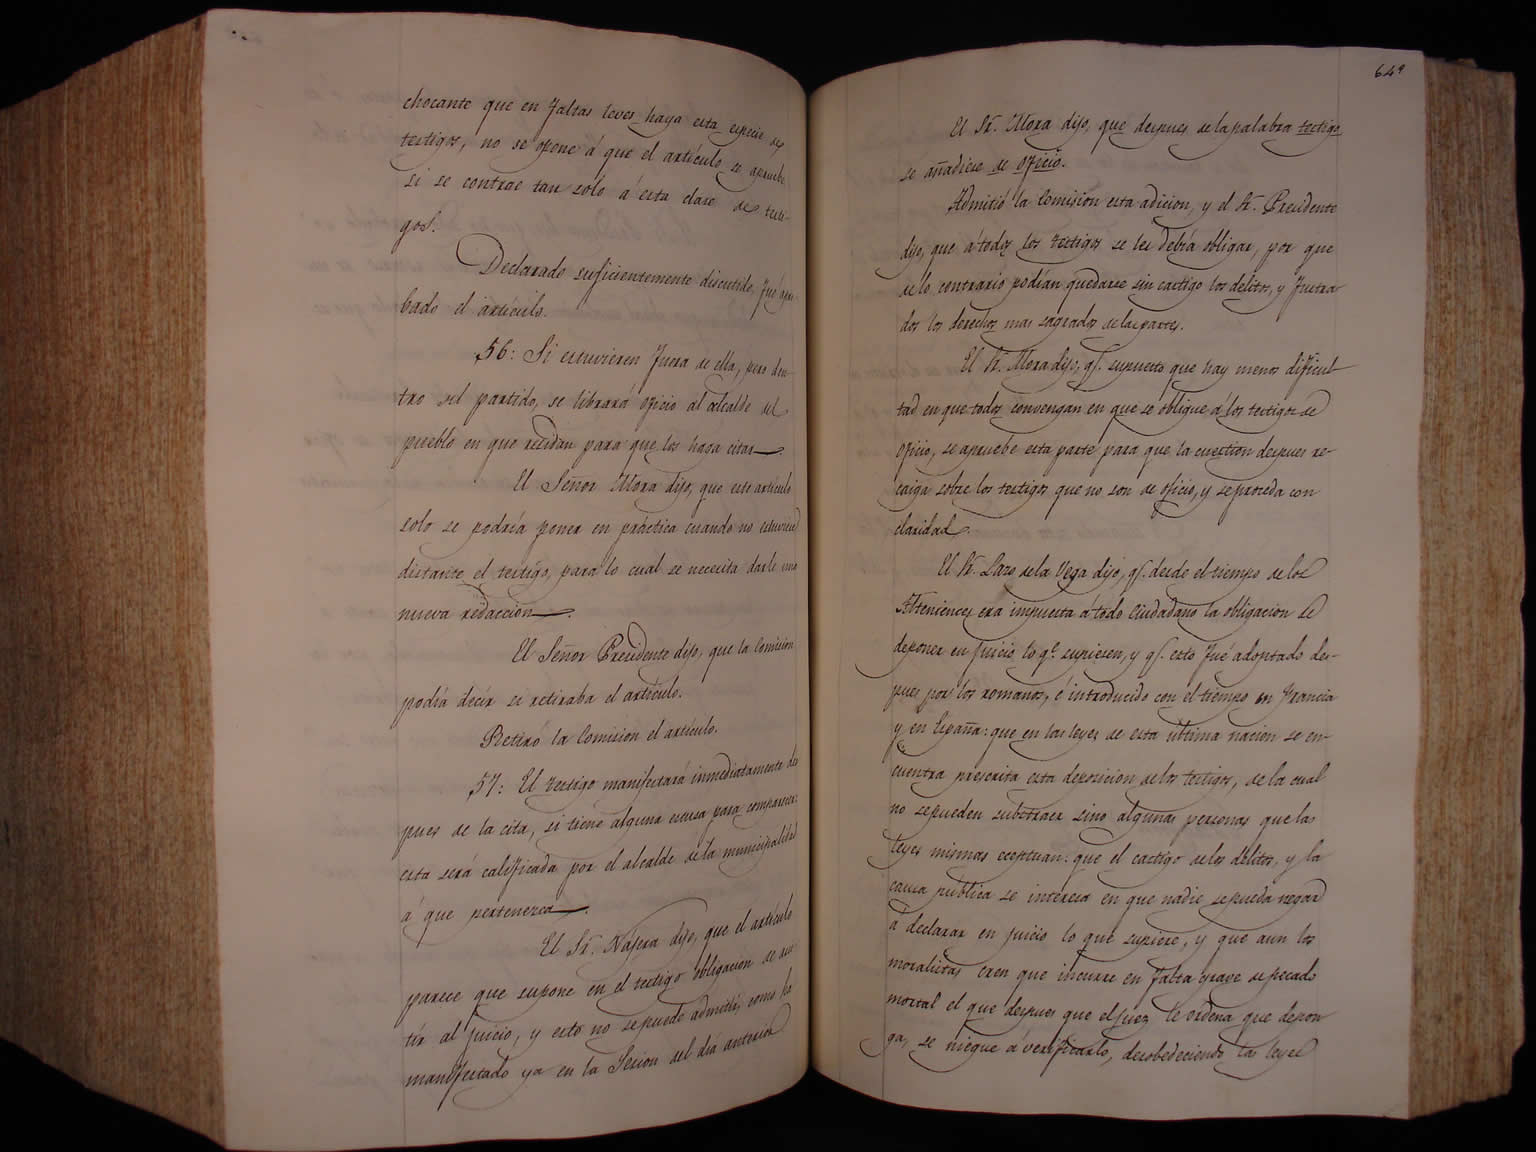 chocante que en faltas leves haya esta especie de
testigos, no se opone á que el artículo se apruebe
si se contrae tan solo á esta clase de testi-
gos.
Declarado suficientemente discutido, fué apro-
bado el artículo.
56: Si estuvieren fuera de ella, pero den-
tro del partido, se librará oficio al alcalde del
pueblo en que residan para que los haga citar.
El Señor Mora dijo, que este artículo
solo se podría poner en práctica cuando no estuviere
distante el testigo, para lo cual se necesita darle una
nueva redaccion.
El Señor Presidente dijo, que la Comision
podía decir si retiraba el artículo.
Retiró la Comision el artículo.
57: El testigo manifestará inmediatamente des
pues de la cita, si tiene alguna escusa para comparecer:
esta será calificada por el alcalde de la municipalidad
á que pertenezca.
El Sr. Nájera dijo, que el artículo
parece que supone en el testigo obligacion de asis
tir al juicio, y esto no se puede admitir, como ha
manifestado ya en la Sesion del día anterior
649
El Sr. Mora dijo, que despues de la palabra testigo
se añadiese de oficio.
Admitió la Comision esta adicion, y el Sr. Presidente
dijo, que á todos los testigos se les debía obligar, por que
de lo contrario podían quedarse sin castigo los delitos, y frustra
dos los derechos mas sagrados de las partes.
El Sr. Mora dijo, qe. supuesto que hay menos dificul
tad en que todos convengan en que se obligue á los testigos de
oficio, se apruebe esta parte para que la cuestion despues re-
caiga sobre los testigos que no son de oficio, y se proceda con
claridad.
El Sr. Lazo de la Vega dijo, qe. desde el tiempo de los
Atenienses era impuesta á todo Ciudadano la obligacion de
deponer en juicio lo qe. supiesen, y qe. esto fué adoptado des-
pues por los romanos, é introducido con el tiempo en Francia
y en España: que en las leyes de esta última nacion se en-
cuentra prescrita esta deposicion de los testigos, de la cual
no se pueden substraer sino algunas personas que las
leyes mismas eceptuan: que el castigo de los delitos, y la
causa pública se interesa en que nadie se pueda negar
á declarar en juicio lo que supiere, y que aun los
moralistas creen que incurre en falta grave de pecado
mortal el que despues que el juez le ordena que depon
ga, se niegue á verificarlo, desobedeciendo las leyes